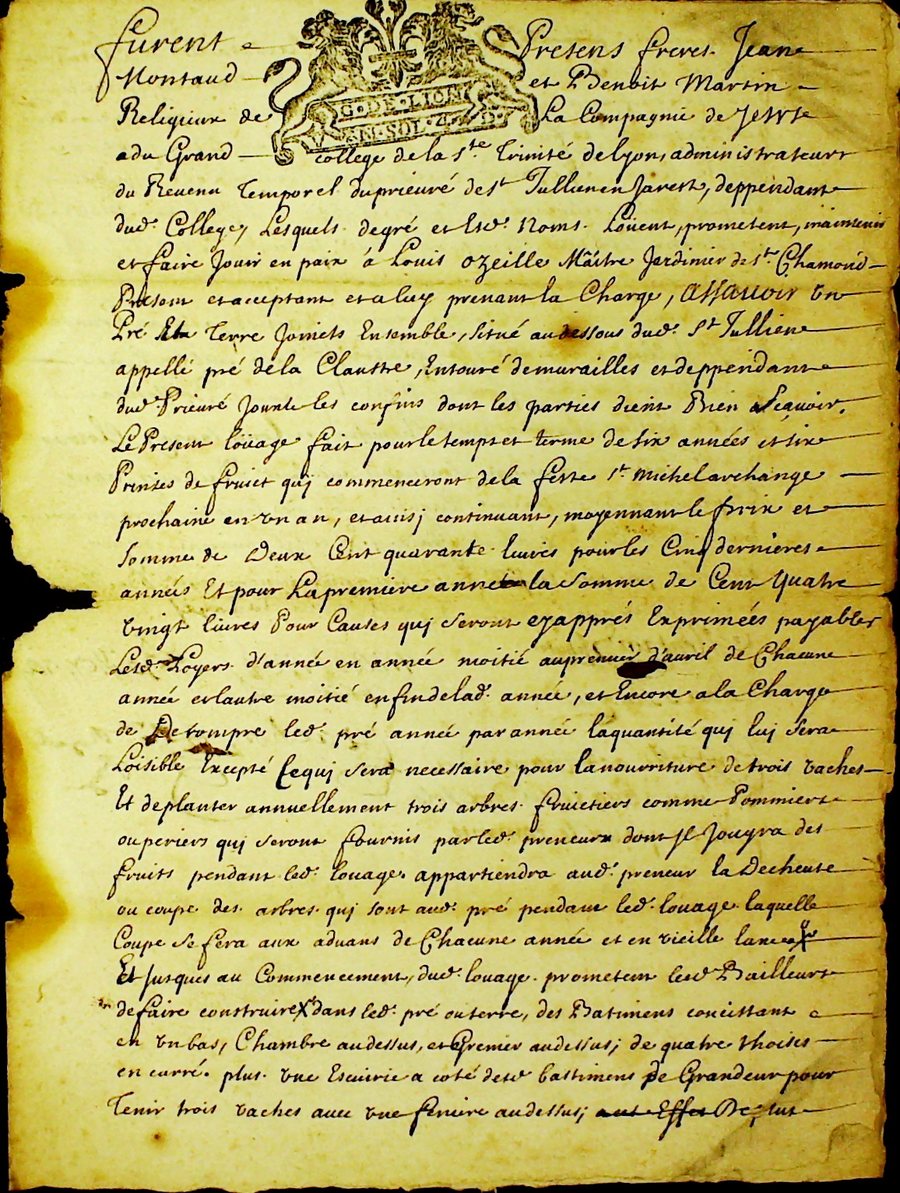 furent Presens freres Jean
Montaud et Benoit Martin
G·DE·LION
Religieux de La Compagnie de Jesus
VN·SOL·4·D·
a du Grand college de la Ste Trinité de Lyon, administrateurs
du Revenu Temporel du prieuré de St Jullien en Jarest, deppendant
dud. College, Lesquels de gré et Esd. Noms Louent, prometent, maintenir
et faire Jouir en paix à Louis Ozeille Maistre Jardinier de St Chamond
Present et acceptant et a luy prenant la Charge, Assavoir un
Pré Et Terre Joincts Ensemble, situé au dessous dud. St Jullien
appellé pré de la Claustre, Entouré de murailles et deppendant
dud. Prieuré les confins dont les parties dient Bien sçavoir.
Le Present louage fait pour le temps et terme de six années et six
Prinses de fruict qui commenceront de la feste St Michel archange
prochaine en un an, et ainsi continuant, moyennant le prix et
somme de Deux Cent quarante livres pour les Cinq dernieres
années Et pour La premiere année la somme de Cent Quatre
vingt livres Pour Causes qui seront cyapprés Exprimées payables
Lesd. Loyers d'année en année moitié au premier d'avril de Chacune
année et lautre moitié en fin de lad. année, et Encore a la Charge
de Derompre led. pré année par année la quantité qui luy sera
Loisible Excepté Ce qui sera necessaire pour la nourriture de trois vaches
Et de planter annuellement trois arbres fruictiers comme Pommiers
ou periers qui seront fournis par led. preneur dont Jl Jouyra des
fruits pendant led. louage, appartiendra aud. preneur la Decheute
ou coupe des arbres qui sont aud. pré pendant led. louage laquelle
Coupe se fera aux advans de Chacune année et en vieille lune
Et Jusques au Commencement dud. louage prometent lesd. Bailleurs
de faire construire dans led. pré ou terre, des Batimens concistant
en un bas, Chambre au dessus, et Grenier au dessus, de quatre thoises
en carré. plus une Escuirie a coté desd. bastimens de Grandeur pour
Tenir trois vaches avec une feniere au dessus,